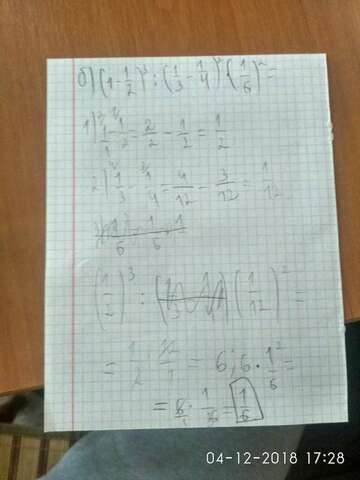 б) (1-1/2)³ : (1/3-1/4)² · (1/6)² =
1) 1/1 - 1/2 = 2/2 - 1/2 = 1/2
2) 1/3 - 1/4 = 4/12 - 3/12 = 1/12
(1/2)³ : (1/12)² =
= 1/2 · 12/1 = 6 ; 6 · 1²/6 =
= 6/1 · 1/6 = 1/6
04-12-2018 17:28